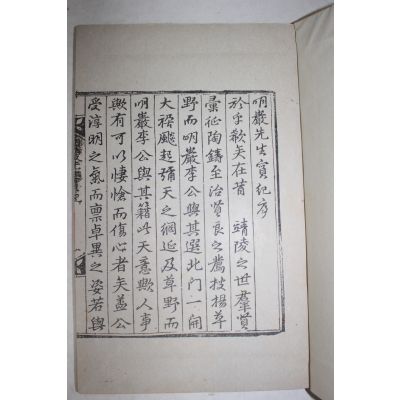 明巖先生實紀序
於乎欷矣在昔 靖陵之世群賢
彙征陶鑄至治賢良之薦拔揚草
野而明巖李公與其選北門一開
大禍颷起彌天之網延及草野而
明巖李公與其籍此天意歟人事
歟有可以悽愴而傷心者矣蓋公
受淳明之氣而稟卓異之姿若與